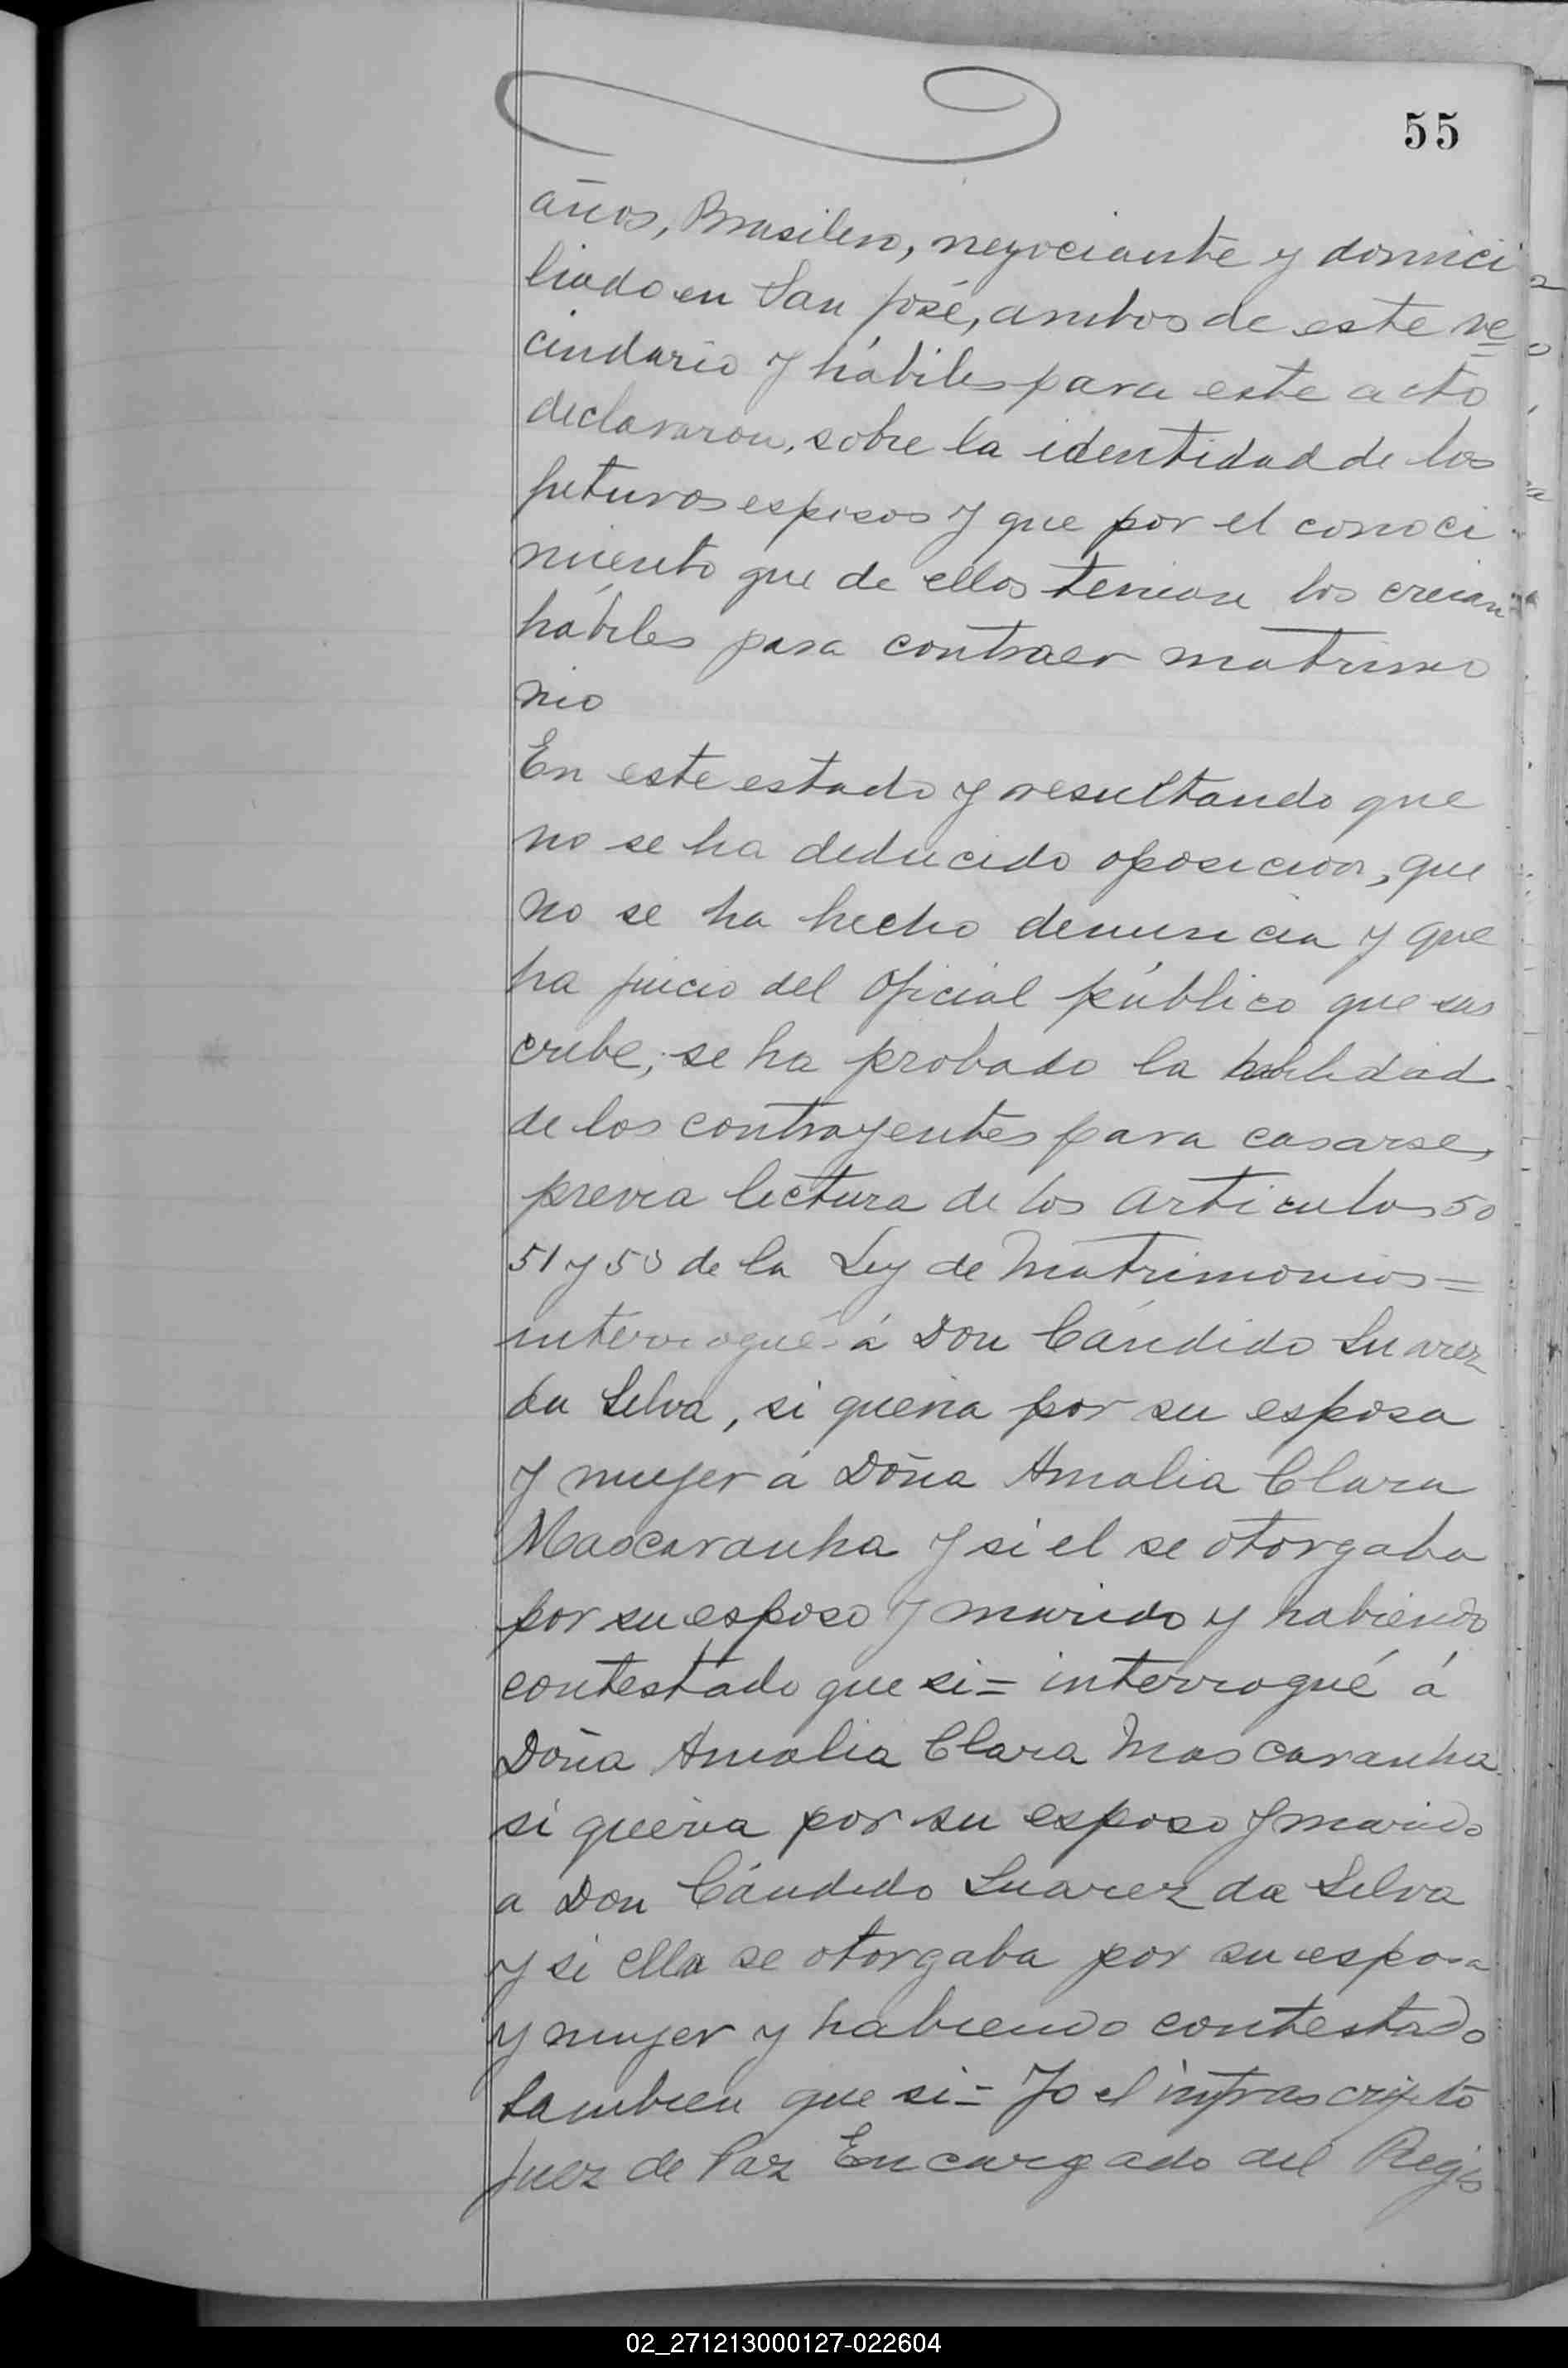 55
años, Brasilero, negociante y domici
liado en San José, ambos de este ve=
cindario y hábiles para este acto
declararon, sobre la identidad de los
futuros esposos y que por el conoci
miento que de ellos tenian los creian
hábiles para contraer matrimo
nio
En este estado y resultando que
no se ha deducido oposicion, que
no se ha hecho denuncia y que
ha juicio del Oficial público que sus
cribe, se ha probado la habilidad
de los contrayentes para casarse,
previa lectura de los articulos 50
51 y 53 de la Ley de Matrimonios=
interrogué á Don Cándido Suarez
da Selva, si queria por su esposa
y mujer á Doña Amalia Clara
Mascaranha y si el se otorgaba
por su esposo y marido y habiendo
contestado que si= interrogué á
Doña Amalia Clara Mascaranha
si queria por su esposo y marido
a Don Cándido Suarez da Selva
y si ella se otorgaba por su esposa
y mujer y habiendo contestado
tambien que si= Yo el infrascripto
Juez de Paz Encargado del Regis
02_271213000127-022604